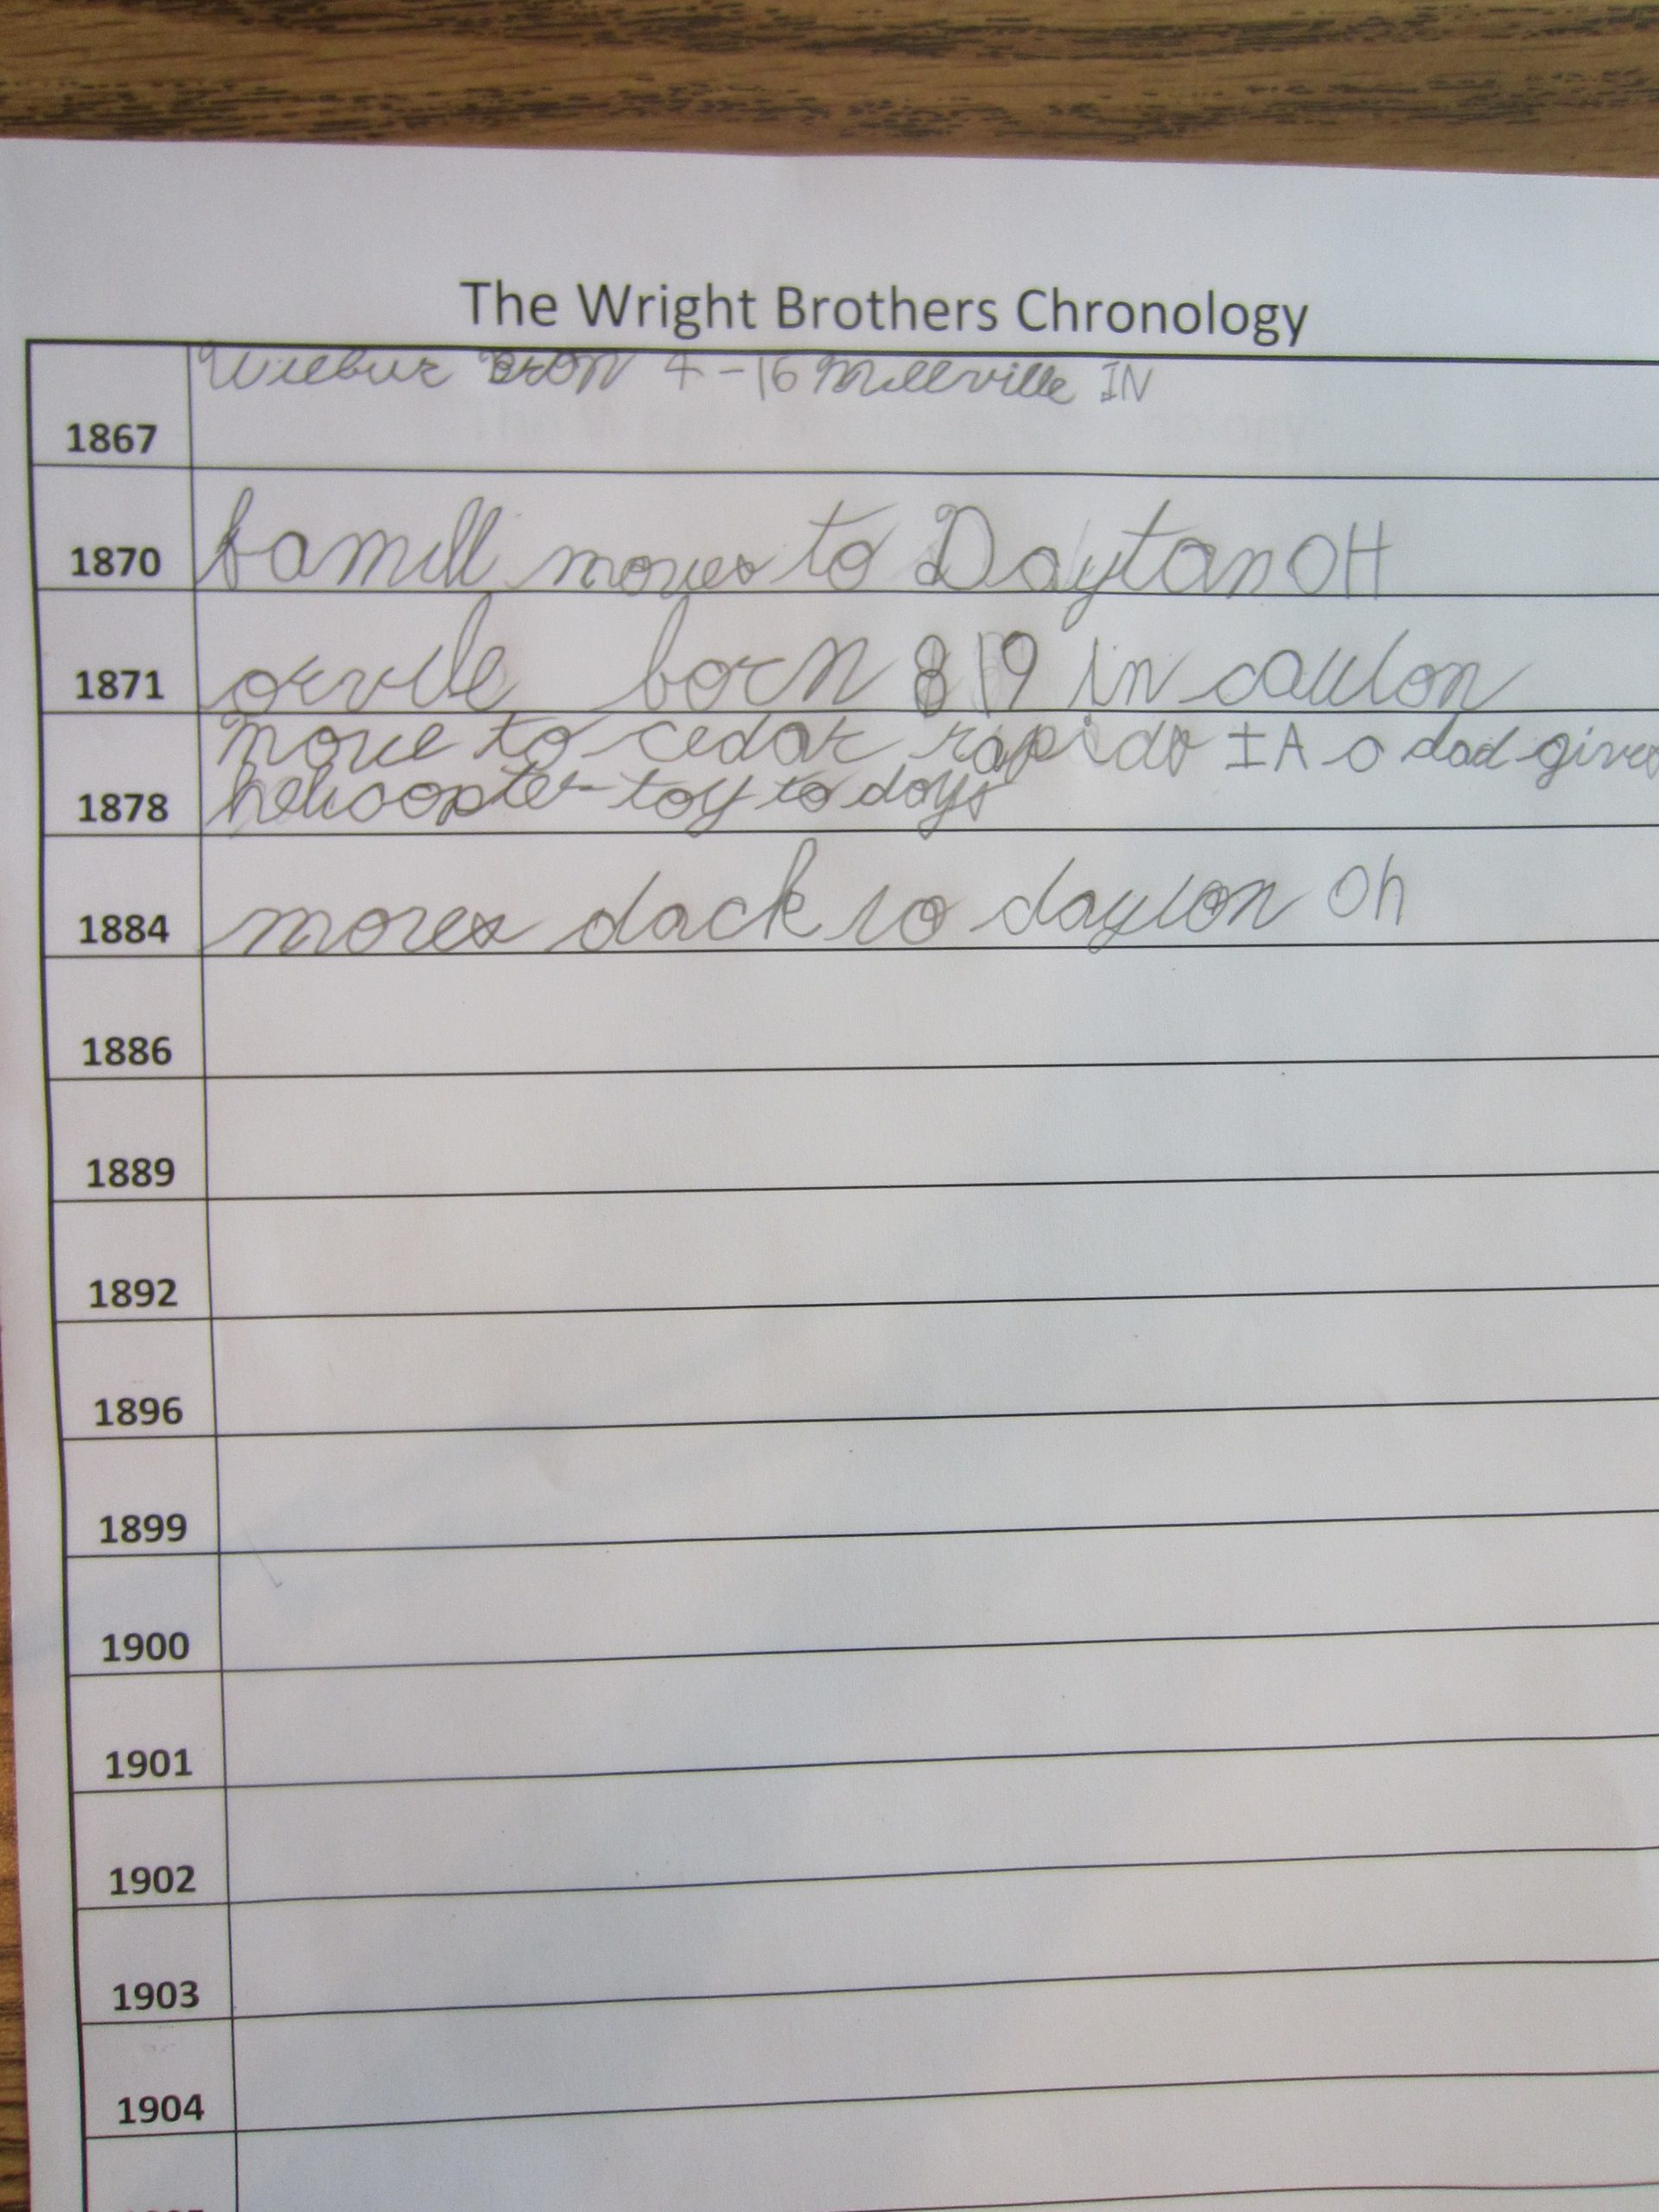 The Wright Brothers Chronology
Wilbur Bron 4-16 Millville IN
1867
1870 famill moves to Daytan OH
1871 orvile born 8 19 in
move to cedar rapids IA o dad gives
1878 helicopter toy to doys
1884 moves dack to daylon Oh
1886
1889
1892
1896
1899
1900
1901
1902
1903
1904